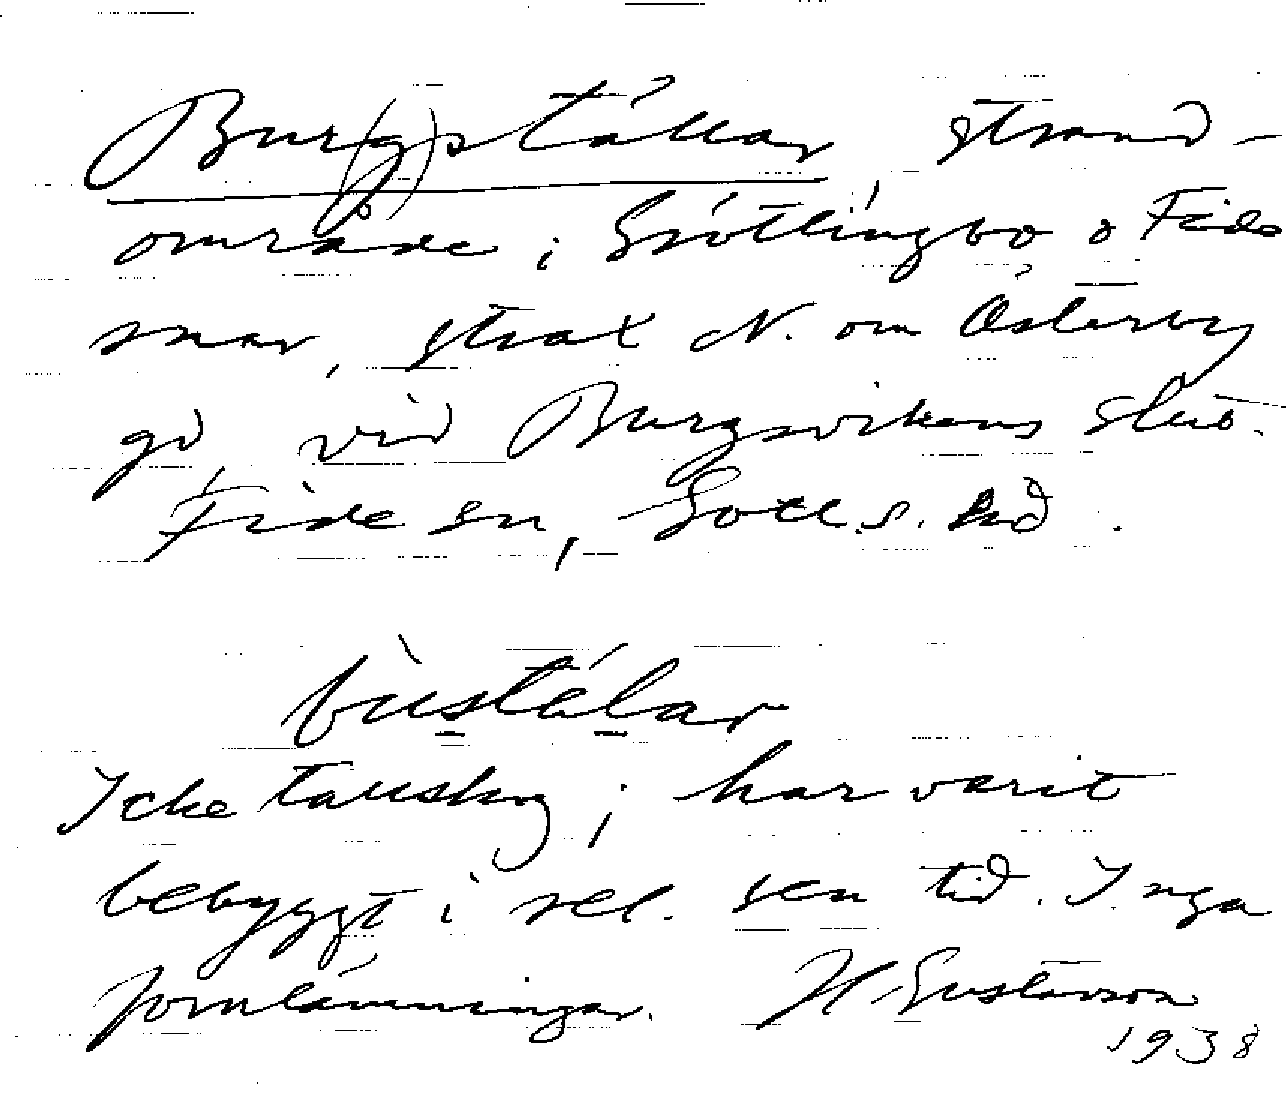 Bur(g)ställar, strand-
område i Grötlingbo o Fide
snar, strax N. om Österby
gd, vid Burgsvikens slut.
Fide sn, Gotl. s. hd.
bustälar
Icke tallskog; har varit
bebyggt i rel. sen tid. Inga
fornlämningar. H. Gustavson
1938